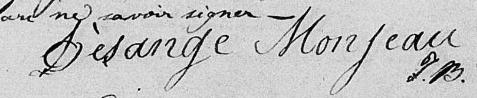 ne savoir signer —
Désange Monjeau
J. B.